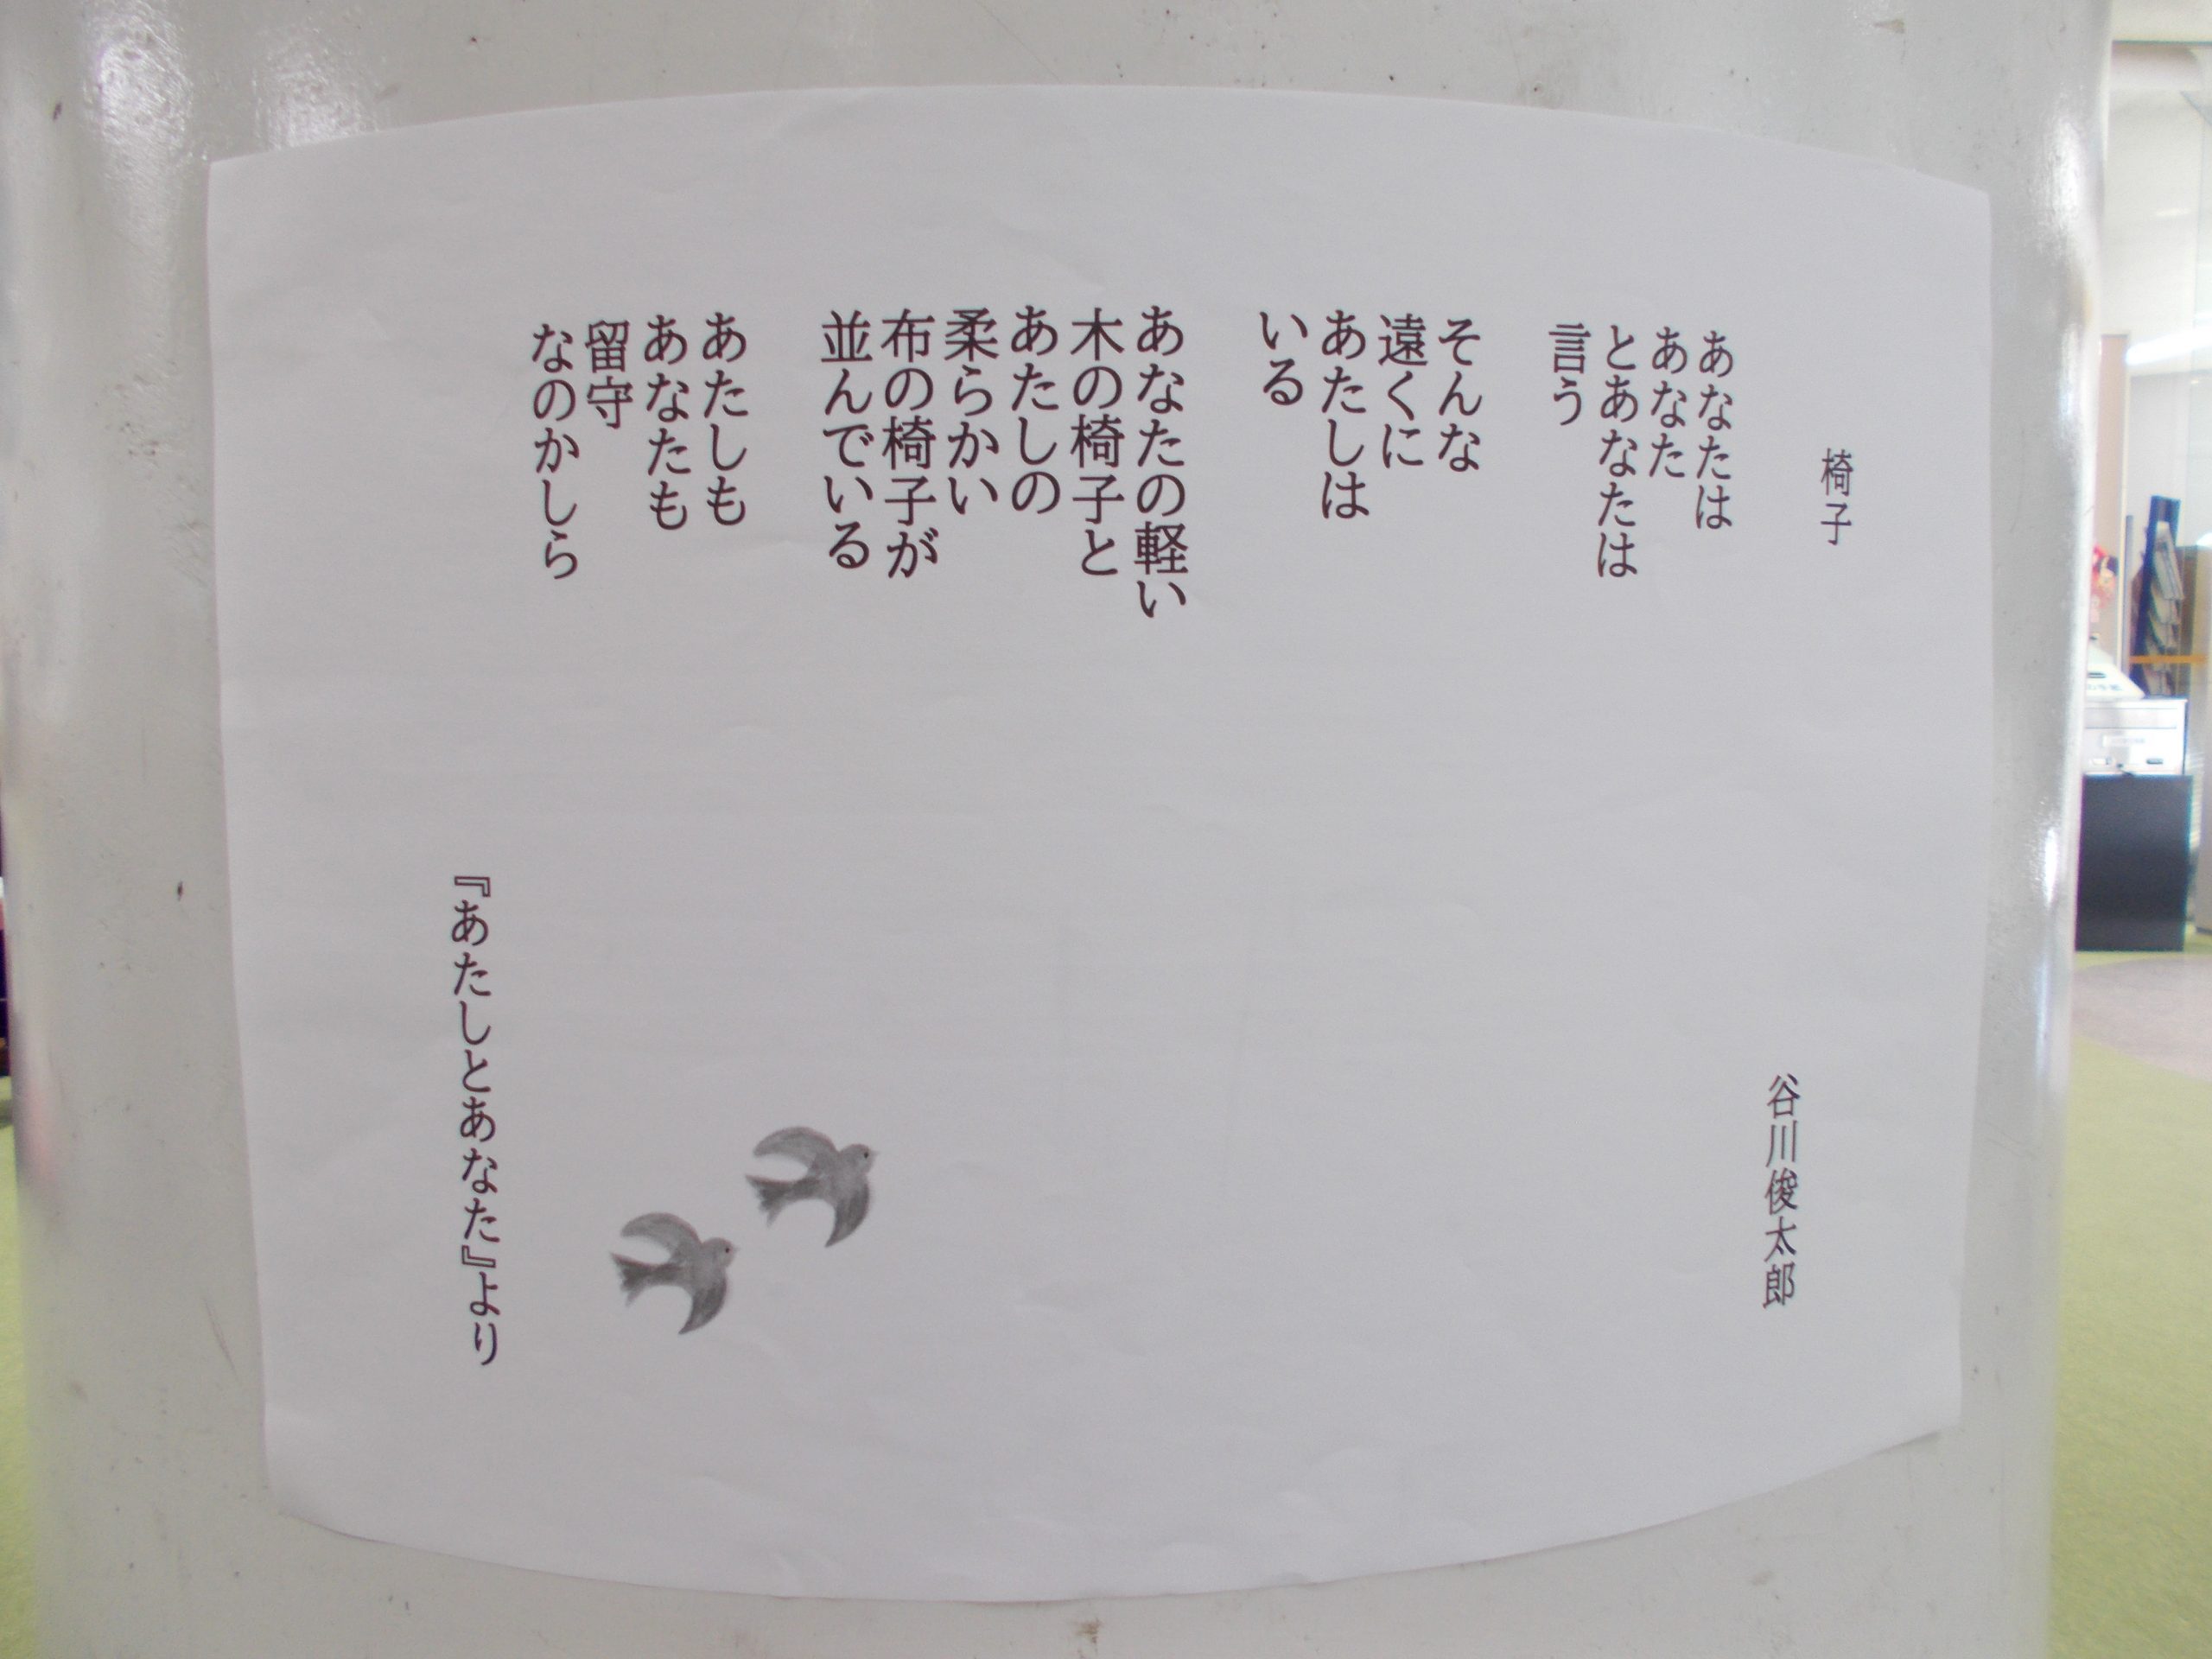 椅子
谷川俊太郎
あなたは
あなた
とあなたは
言う
そんな
遠くに
あたしは
いる
あなたの軽い
木の椅子と
あたしの
柔らかい
布の椅子が
並んでいる
あたしも
あなたも
留守
なのかしら
『あたしとあなた』より